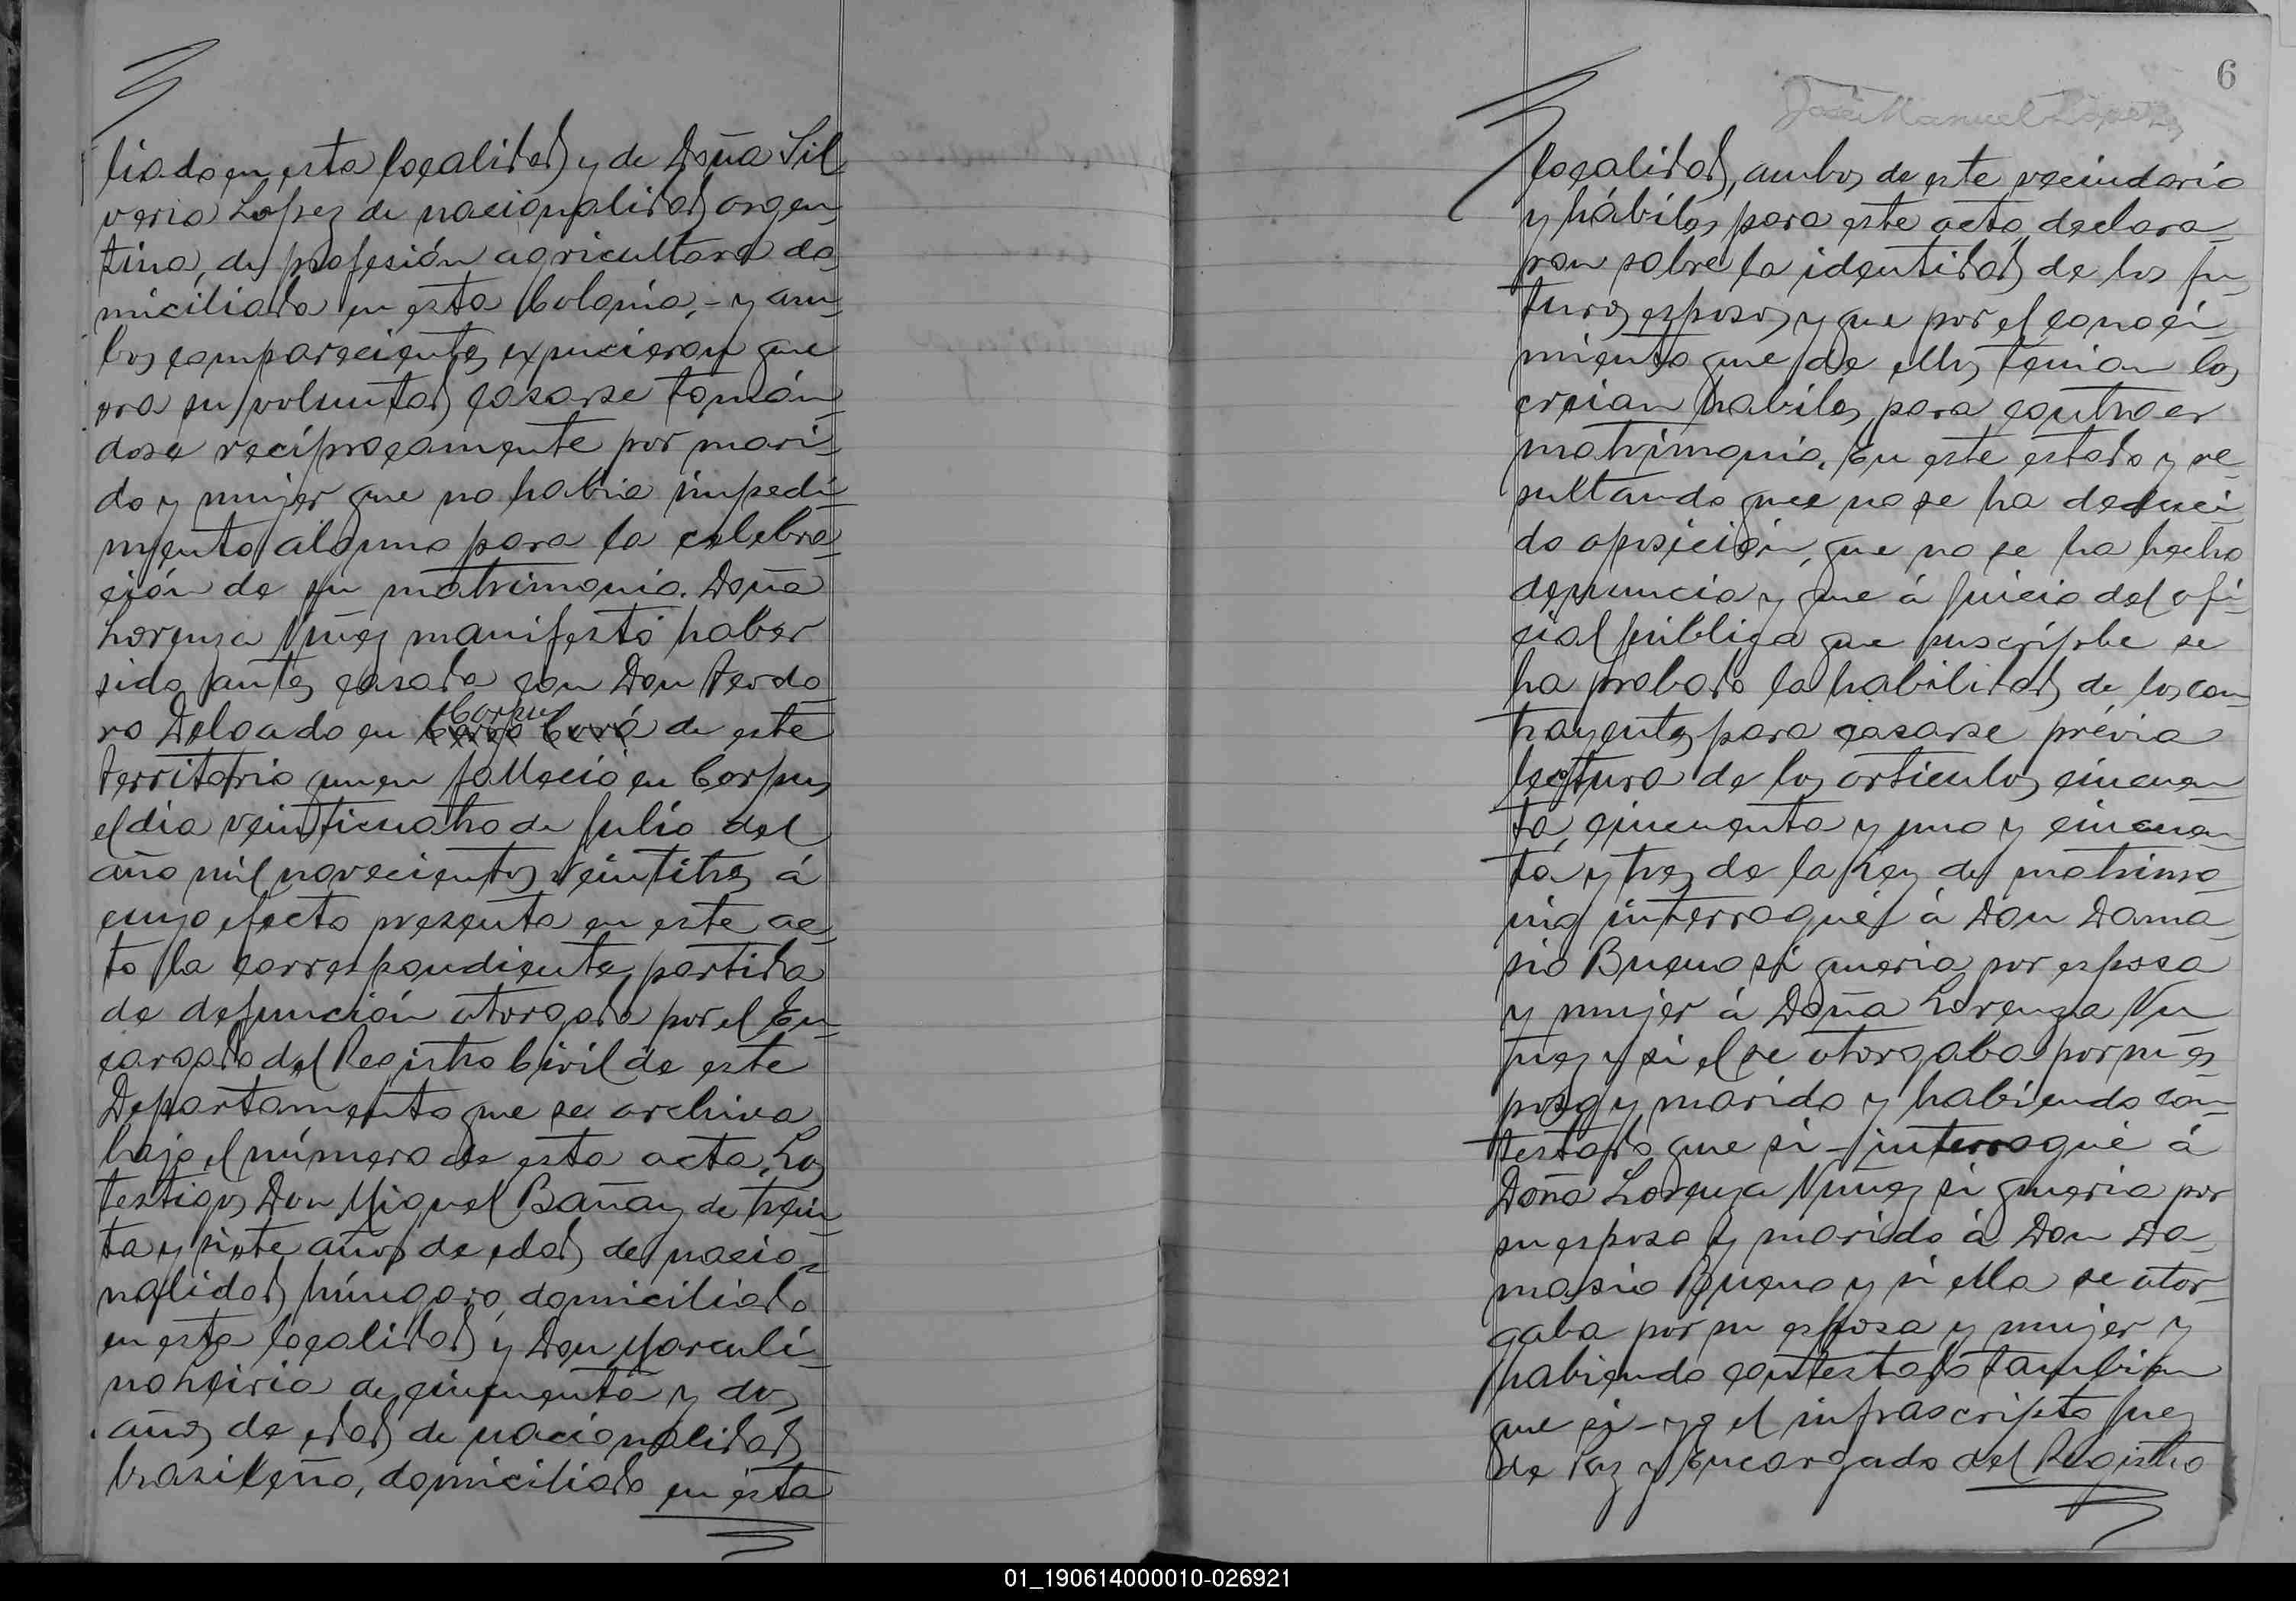 liado en esta localidad y de Doña Sil
veria Lopez de nacionalidad argen
tina, de profesión agricultora do
miciliada en esta Colonia, - y am
bos comparecientes expucieron que
era su voluntad casarse tomán
dose recíprocamente por mari
do y mujer que no habia impedi
mento alguno para la celebra
ción de su matrimonio. Doña
Lorenza Nuñez manifestó haber
sido antes casada con Don
ro Delgado en Corpus de este
territorio quien falleció en Corpus
el dia veinticuatro de Julio del
año mil novecientos veintitres á
cuyo efecto presenta en este ac
to la correspondiente partida
de defunción otorgada por el En
cargado del Registro Civil de este
Departamento que se archiva
bajo el número de esta acta. Los
testigos Don Miguel Bañay de trein
ta y siete años de edad de nacio
nalidad húngara, domiciliado
en esta localidad y Don Marculi
no Leiria de cincuenta y dos
años de edad de nacionalidad
brasileña, domiciliado en esta
6
José Manuel López
localidad, ambos de este vecindario
y hábiles para este acto declara
ron sobre la identidad de los fu
turos esposos y que por el conoci
miento que de ellos tenian los
creian habiles para contraer
matrimonio. En este estado y re
sultando que no se ha deduci
do oposición, que no se ha hecho
denuncia y que á juicio del ofi
cial público que suscripbe se
ha probado la habilidad de los con
trayentes para casarse prévia
lectura de los artículos cincuen
ta, cincuenta y uno y cincuen
ta y tres de la Ley de matrimo
nio interrogué á Don Dama
sio Bueno si queria por esposa
y mujer á Doña Lorenza Nu
ñez y si el se otorgaba por su es
poso y marido y habiendo con
testado que si - interrogué á
Doña Lorenza Nuñez si queria por
su esposo y marido á Don Da
masio Bueno y si ella se otor
gaba por su esposa y mujer y
habiendo contestado tambien
que si - yo el infrascripto Juez
de Paz y Encargado del Registro
01_190614000010-026921